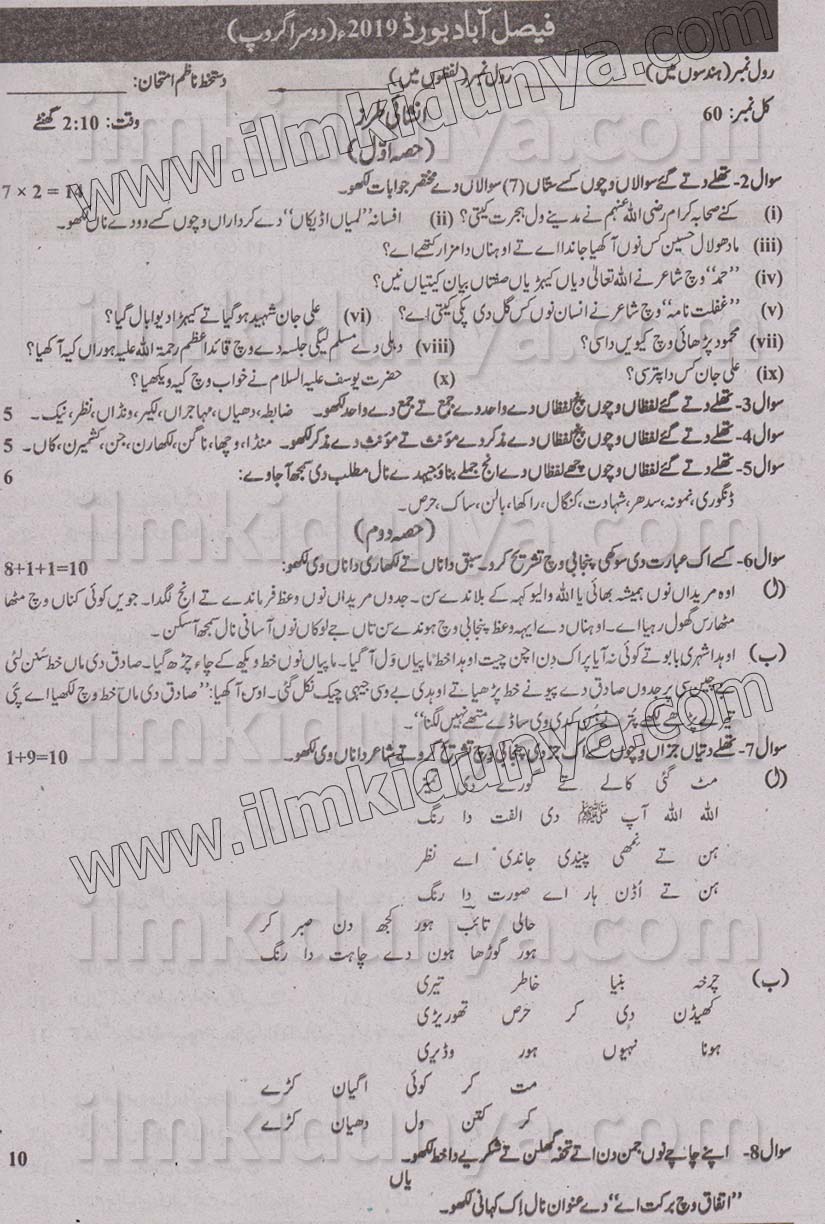 فیصل آباد بورڈ 2019ء (دوسرا گروپ)
رول نمبر (ہندسوں میں) __________ رول نمبر (لفظوں میں) __________ دستخط ناظم امتحان: __________
کل نمبر: 60 انشائی طرز وقت: 2:10 گھنٹے
(حصہ اوّل)
سوال 2- تھلے دتے گئے سوالاں وچوں کسے ستاں (7) سوالاں دے مختصر جوابات لکھو۔ 7 × 2 = 14
(i) کنے صحابہ کرام رضی اللہ عنہم نے مدینے ول ہجرت کیتی؟ (ii) افسانہ "لمیاں اڈیکاں" دے کرداراں وچوں کسے دو دے نال لکھو۔
(iii) مادھو لال حسین کس نوں آکھیا جاندا اے تے اوہناں دا مزار کتھے اے؟
(iv) "حمد" وچ شاعر نے اللہ تعالیٰ دیاں کیہڑیاں صفتاں بیان کیتیاں نیں؟
(v) "غفلت نامہ" وچ شاعر نے انسان نوں کس گل دی پکی کیتی اے؟ (vi) علی جان شہید ہو گیا تے کیہڑا دیوا بال گیا؟
(vii) محمود پڑھائی وچ کیویں دا سی؟ (viii) دہلی دے مسلم لیگی جلسہ دے وچ قائداعظم رحمۃ اللہ علیہ ہوراں کیہ آکھیا؟
(ix) علی جان کس دا پتر سی؟ (x) حضرت یوسف علیہ السلام نے خواب وچ کیہ ویکھیا؟
سوال 3- تھلے دتے گئے لفظاں وچوں پنج لفظاں دے واحد دے جمع تے جمع دے واحد لکھو۔ ضابطہ، دھیاں، مہاجراں، لکیر، ونڈاں، نظر، نیک۔ 5
سوال 4- تھلے دتے گئے لفظاں وچوں پنج لفظاں دے مذکر دے مؤنث تے مؤنث دے مذکر لکھو۔ منڈا، وچھا، ناگن، لکھارن، جن، کشمیرن، کاں۔ 5
سوال 5- تھلے دتے گئے لفظاں وچوں چھے لفظاں دے انج جملے بناؤ جیہدے نال مطلب دی سمجھ آ جاوے: 6
ڈنگوری، نمونہ، سدھر، شہادت، کنگال، راکھا، بالن، ساک، حرص۔
(حصہ دوم)
سوال 6- کسے اک عبارت دی سوکھی پنجابی وچ تشریح کرو۔ سبق دا ناں تے لکھاری دا ناں وی لکھو: 8+1+1=10
(ا) اوہ مریداں نوں ہمیشہ بھائی یا اللہ والیو کہہ کے بلاندے سن۔ جدوں مریداں نوں وعظ فرماندے تے انج لگدا۔ جویں کوئی کناں وچ مٹھا
مٹھا رس گھول رہیا اے۔ اوہناں دے ایہہ وعظ پنجابی وچ ہوندے سن تاں جے لوکاں نوں آسانی نال سمجھ آ سکن۔
(ب) اوہدا شہری بابو تے کوئی نہ آیا پر اک دن اچن چیت اوہدا خط ماپیاں ول آ گیا۔ ماپیاں نوں خط ویکھ کے چاء چڑھ گیا۔ صادق دی ماں خط سنن لئی
بے چین سی پر جدوں صادق دے پیو نے خط پڑھیا تے اوہدی بے وسی جیہی چیک نکل گئی۔ اوس آکھیا: "صادق دی ماں خط وچ لکھیا اے پئی
تیرے پڑھے لکھے پتر نے ہن کدی وی ساڈے متھے نہیں لگنا"۔
سوال 7- تھلے دتیاں جزاں وچوں کسے اک جز دی پنجابی وچ تشریح کرو تے شاعر دا ناں وی لکھو۔ 1+9=10
(ا) مٹ گئی کالے تے گورے دی تمیز
اللہ اللہ آپ ﷺ دی الفت دا رنگ
ہن تے نمھی پیندی جاندی اے نظر
ہن تے اڈن ہار اے صورت دا رنگ
حالی تائب ہور کجھ دن صبر کر
ہور گوڑھا ہون دے چاہت دا رنگ
(ب) چرخہ بنیا خاطر تیری
کھیڈن دی کر حرص تھوریڑی
ہونا نہیوں ہور وڈیری
مت کر کوئی اگیان کڑے
کر کتن ول دھیان کڑے
سوال 8- اپنے چاچے نوں جمن دن اتے تحفہ گھلن تے شکریے دا خط لکھو۔ 10
یاں
"اتفاق وچ برکت اے" دے عنوان نال اک کہانی لکھو۔
www.ilmkidunya.com